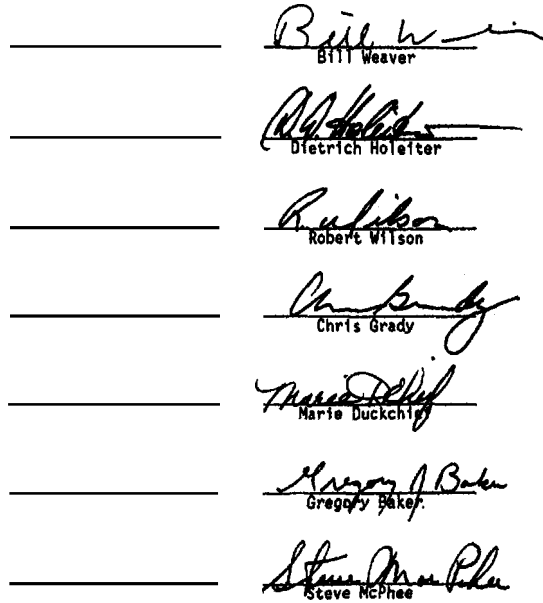 Bill W
Bill Weaver
D. W. Holeiter
Dietrich Holeiter
R. Wilson
Robert Wilson
Chris Grady
Chris Grady
Marie Dckief
Marie Duckchief
Gregory J Baker
Gregory Baker.
Steve MacPhee
Steve McPhee